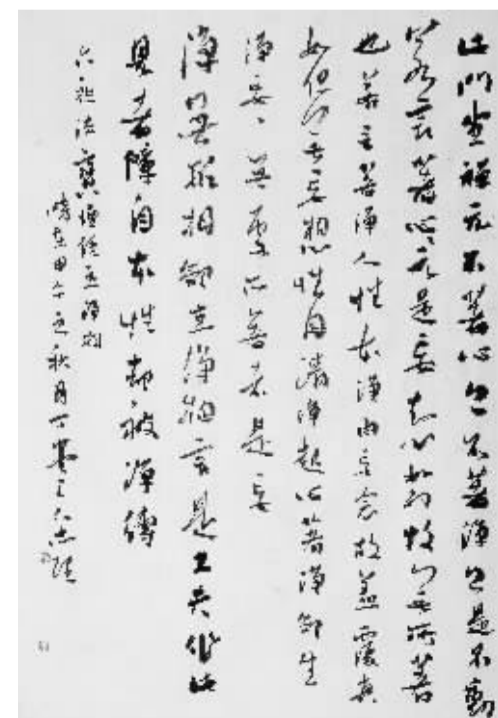 此門坐禪元不著心亦不著淨亦是不動
若言著心心元是妄知心如幻故無所著
也若言著淨人性本淨由妄念故蓋覆真
如但無妄想性自清淨起心著淨卻生
淨妄妄無處所著者是妄
淨無形相卻立淨相言是工夫作此
見者障自本性卻被淨縛
六祖法寶壇經
時在甲午之秋月